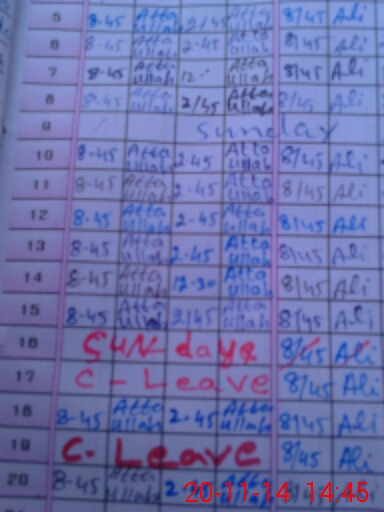 5 8-45 Atta ullah 2/45 Atta ullah 8/45 Ali
6 8-45 Atta ullah 2-45 Atta ullah 8/45 Ali
7 8-45 Atta ullah 12- Atta ullah 8/45 Ali
8 8-45 Atta ullah 2/45 Atta ullah 8/45 Ali
9 Sunday
10 8-45 Atta ullah 2-45 Atta ullah 8/45 Ali
11 8-45 Atta ullah 2-45 Atta ullah 8/45 Ali
12 8-45 Atta ullah 2-45 Atta ullah 8/45 Ali
13 8-45 Atta ullah 2-45 Atta ullah 8/45 Ali
14 8-45 Atta ullah 12-30 Atta ullah 8/45 Ali
15 8-45 Atta ullah 2/45 Atta ullah 8/45 Ali
16 SUN days 8/45 Ali
17 C - Leave 8/45 Ali
18 8-45 Atta ullah 2-45 Atta ullah 8/45 Ali
19 C. Leave 8/45 Ali
20 8-45 Atta ullah Atta ullah 8/45 Ali
20-11-14 14:45